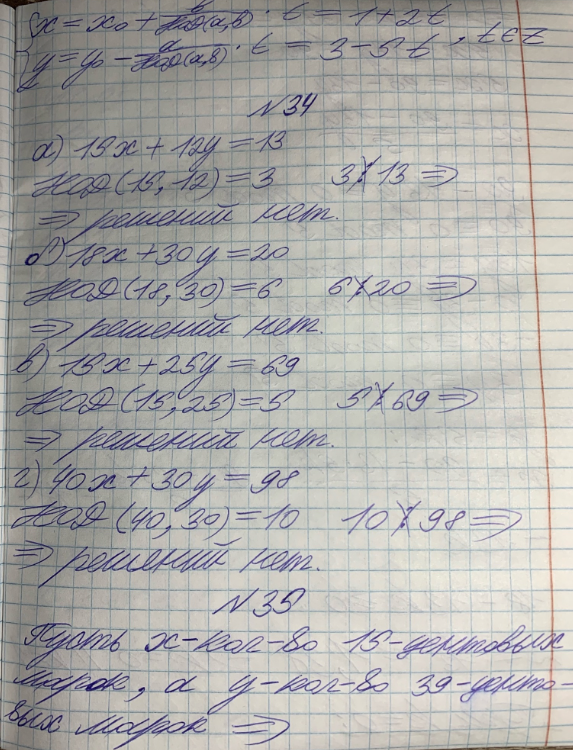 x = x₀ + b/НОД(a,b) · t = 1 + 2t
y = y₀ − a/НОД(a,b) · t = 3 − 5t, t∈Z
N34
а) 15x + 12y = 13
НОД(15, 12) = 3 3∤13 ⇒
⇒ решений нет.
б) 18x + 30y = 20
НОД(18, 30) = 6 6∤20 ⇒
⇒ решений нет.
в) 15x + 25y = 69
НОД(15, 25) = 5 5∤69 ⇒
⇒ решений нет.
г) 40x + 30y = 98
НОД(40, 30) = 10 10∤98 ⇒
⇒ решений нет.
N35
Пусть x-кол-во 15-центовых
марок, а y-кол-во 39-центо-
вых марок ⇒